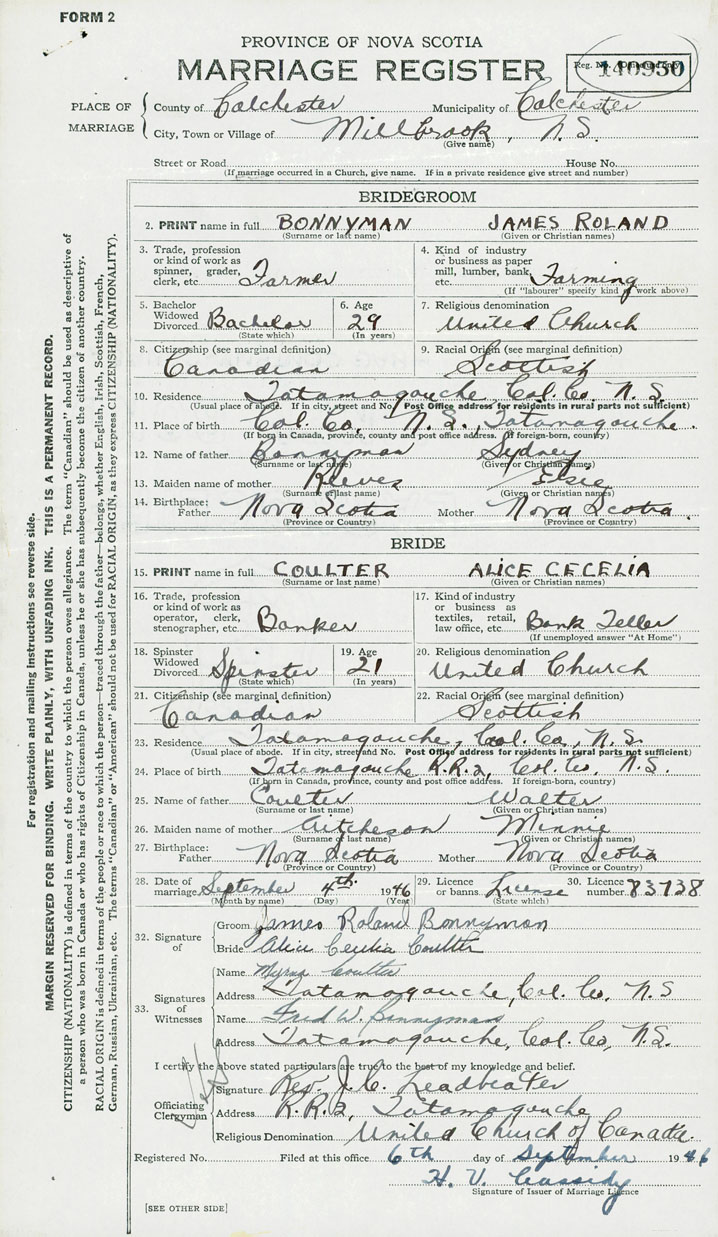 FORM 2
PROVINCE OF NOVA SCOTIA
MARRIAGE REGISTER
Reg. No. 140930
PLACE OF MARRIAGE
County of Colchester Municipality of Colchester
City, Town or Village of Millbrook, N.S.
(Give name)
Street or Road House No.
(If marriage occurred in a Church, give name. If in a private residence give street and number)
BRIDEGROOM
2. PRINT name in full BONNYMAN JAMES ROLAND
(Surname or last name) (Given or Christian names)
3. Trade, profession or kind of work as spinner, grader, clerk, etc. Farmer
4. Kind of industry or business as paper mill, lumber, bank, etc. Farming
(If "labourer" specify kind of work above)
5. Bachelor Widowed Divorced Bachelor (State which)
6. Age 29 (In years)
7. Religious denomination United Church
8. Citizenship (see marginal definition) Canadian
9. Racial Origin (see marginal definition) Scottish
10. Residence Tatamagouche Col. Co. N.S.
(Usual place of abode. If in city, street and No. Post Office address for residents in rural parts not sufficient)
11. Place of birth Col. Co, N.S., Tatamagouche.
(If born in Canada, province, county and post office address. If foreign-born, country)
12. Name of father Bonnyman Sydney
(Surname or last name) (Given or Christian names)
13. Maiden name of mother Reeves Elsie
(Surname or last name) (Given or Christian names)
14. Birthplace: Father Nova Scotia Mother Nova Scotia.
(Province or Country) (Province or Country)
BRIDE
15. PRINT name in full COULTER ALICE CECELIA
(Surname or last name) (Given or Christian names)
16. Trade, profession or kind of work as operator, clerk, stenographer, etc. Banker
17. Kind of industry or business as textiles, retail, law office, etc. Bank Teller
(If unemployed answer "At Home")
18. Spinster Widowed Divorced Spinster (State which)
19. Age 21 (In years)
20. Religious denomination United Church
21. Citizenship (see marginal definition) Canadian
22. Racial Origin (see marginal definition) Scottish
23. Residence Tatamagouche, Col. Co, N.S.
(Usual place of abode. If in city, street and No. Post Office address for residents in rural parts not sufficient)
24. Place of birth Tatamagouche R.R.2, Col. Co. N.S.
(If born in Canada, province, county and post office address. If foreign-born, country)
25. Name of father Coulter Walter
(Surname or last name) (Given or Christian names)
26. Maiden name of mother Aitcheson Minnie
(Surname or last name) (Given or Christian names)
27. Birthplace: Father Nova Scotia Mother Nova Scotia
(Province or Country) (Province or Country)
28. Date of marriage September 4th. 1946
(Month by name) (Day) (Year)
29. Licence or banns. License (State which)
30. Licence number 83738
32. Signature of
Groom James Roland Bonnyman
Bride Alice Cecelia Coulter
33. Signatures of Witnesses
Name Myrna Coulter
Address Tatamagouche, Col. Co. N.S
Name Fred W. Bonnyman
Address Tatamagouche, Col. Co, N.S.
I certify the above stated particulars are true to the best of my knowledge and belief.
Officiating Clergyman
Signature Rev. J. C. Leadbeater
Address R.R.2, Tatamagouche
Religious Denomination United Church of Canada.
Registered No. Filed at this office 6th day of September 1946
H. V. Cassidy
Signature of Issuer of Marriage Licence
[SEE OTHER SIDE]
For registration and mailing instructions see reverse side.
MARGIN RESERVED FOR BINDING. WRITE PLAINLY, WITH UNFADING INK. THIS IS A PERMANENT RECORD.
CITIZENSHIP (NATIONALITY) is defined in terms of the country to which the person owes allegiance. The term "Canadian" should be used as descriptive of
a person who was born in Canada or who has rights of Citizenship in Canada, unless he or she has subsequently become the citizen of another country.
RACIAL ORIGIN is defined in terms of the people or race to which the person—traced through the father—belongs, whether English, Irish, Scottish, French,
German, Russian, Ukrainian, etc. The terms "Canadian" or "American" should not be used for RACIAL ORIGIN, as they express CITIZENSHIP (NATIONALITY).